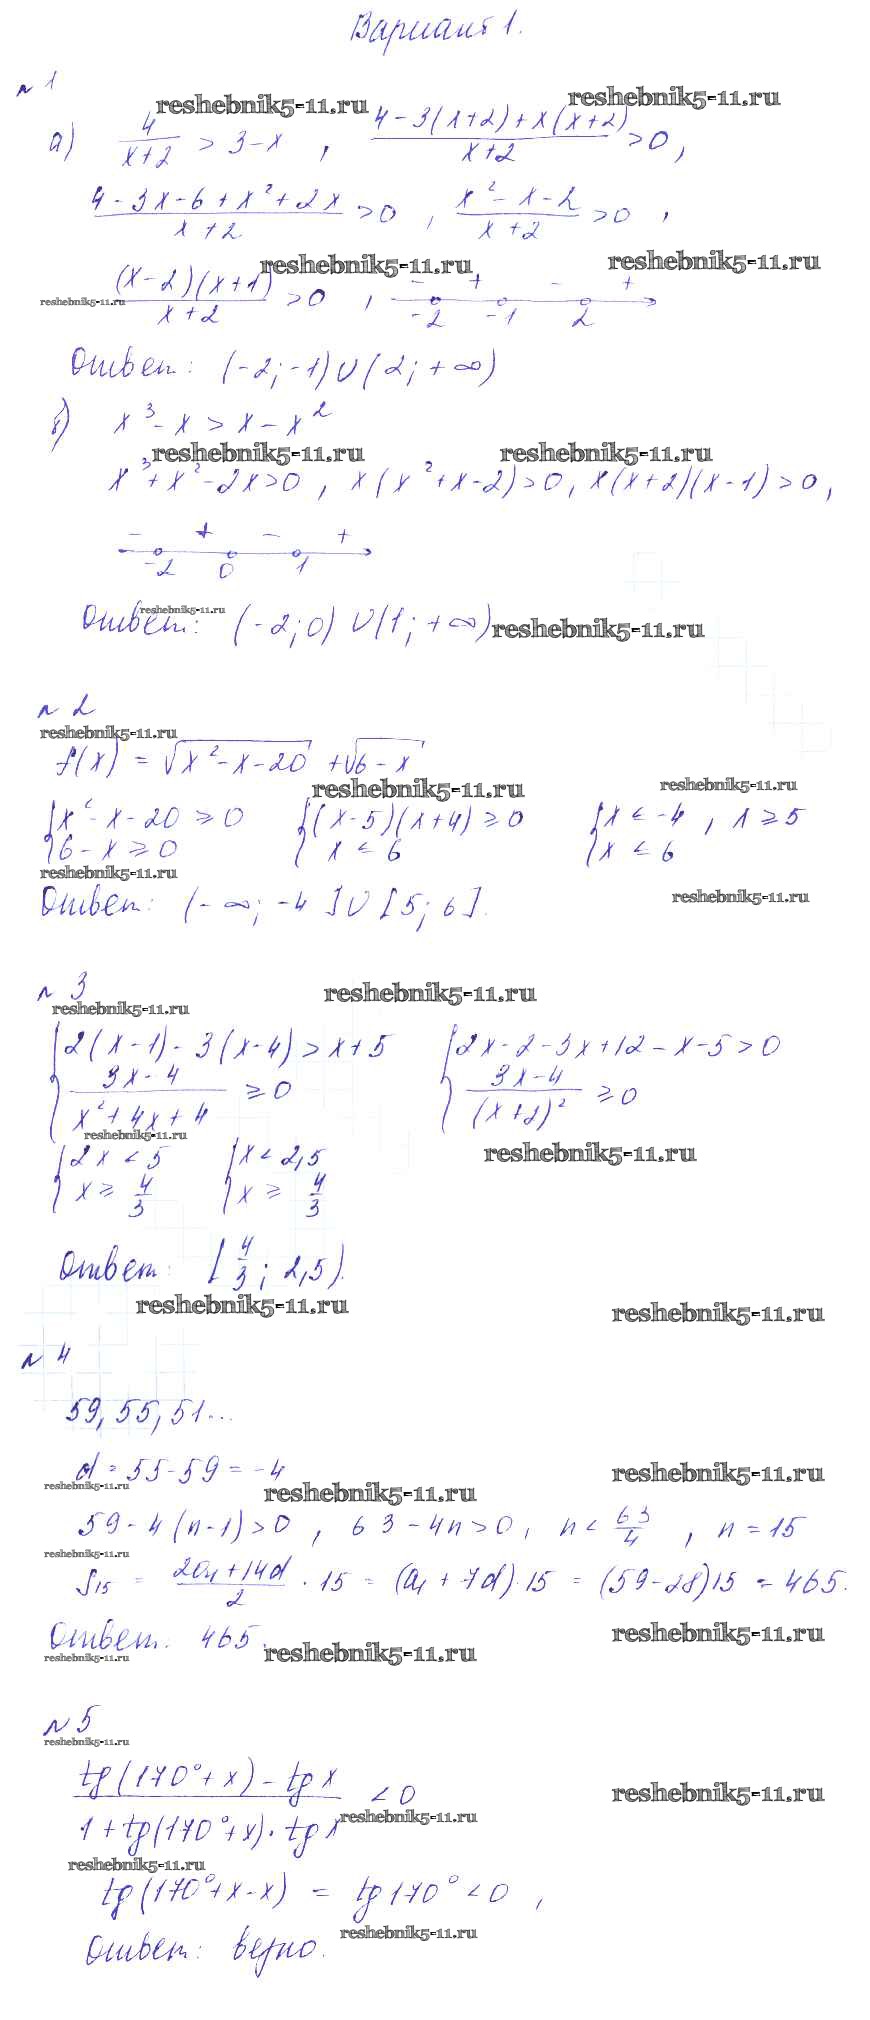 Вариант 1.
№ 1
reshebnik5-11.ru reshebnik5-11.ru
а) 4/(x+2) > 3-x , (4-3(x+2)+x(x+2))/(x+2) > 0 ,
(4-3x-6+x²+2x)/(x+2) > 0 , (x²-x-2)/(x+2) > 0 ,
reshebnik5-11.ru reshebnik5-11.ru
reshebnik5-11.ru
((x-2)(x+1))/(x+2) > 0 , - + - +
-2 -1 2
Ответ: (-2; -1) ∪ (2; +∞)
б) x³-x > x-x²
reshebnik5-11.ru reshebnik5-11.ru
x³+x²-2x>0 , x(x²+x-2)>0, x(x+2)(x-1)>0,
- + - +
-2 0 1
reshebnik5-11.ru
Ответ: (-2; 0) ∪ (1; +∞)
reshebnik5-11.ru
№ 2
reshebnik5-11.ru
f(x) = √(x²-x-20) + √(6-x)
reshebnik5-11.ru reshebnik5-11.ru
{x²-x-20 ≥ 0 {(x-5)(x+4) ≥ 0 {x ≤ -4 , x ≥ 5
6-x ≥ 0 x ≤ 6 x ≤ 6
reshebnik5-11.ru
Ответ: (-∞; -4] ∪ [5; 6].
reshebnik5-11.ru
№ 3
reshebnik5-11.ru reshebnik5-11.ru
{2(x-1)-3(x-4) > x+5 {2x-2-3x+12-x-5 > 0
(3x-4)/(x²+4x+4) ≥ 0 (3x-4)/(x+2)² ≥ 0
reshebnik5-11.ru reshebnik5-11.ru
{2x < 5 {x < 2,5
x ≥ 4/3 x ≥ 4/3
Ответ: [4/3; 2,5).
reshebnik5-11.ru reshebnik5-11.ru
№ 4
59, 55, 51...
d = 55-59 = -4
reshebnik5-11.ru reshebnik5-11.ru reshebnik5-11.ru
59-4(n-1)>0 , 63-4n>0, n < 63/4 , n = 15
reshebnik5-11.ru
S₁₅ = (2a₁+14d)/2 · 15 = (a₁+7d)·15 = (59-28)15 = 465.
Ответ: 465.
reshebnik5-11.ru reshebnik5-11.ru reshebnik5-11.ru
№ 5
reshebnik5-11.ru
(tg(170°+x)-tg x)/(1+tg(170°+x)·tg x) < 0
reshebnik5-11.ru reshebnik5-11.ru
reshebnik5-11.ru
tg(170°+x-x) = tg 170° < 0 ,
reshebnik5-11.ru
Ответ: верно.